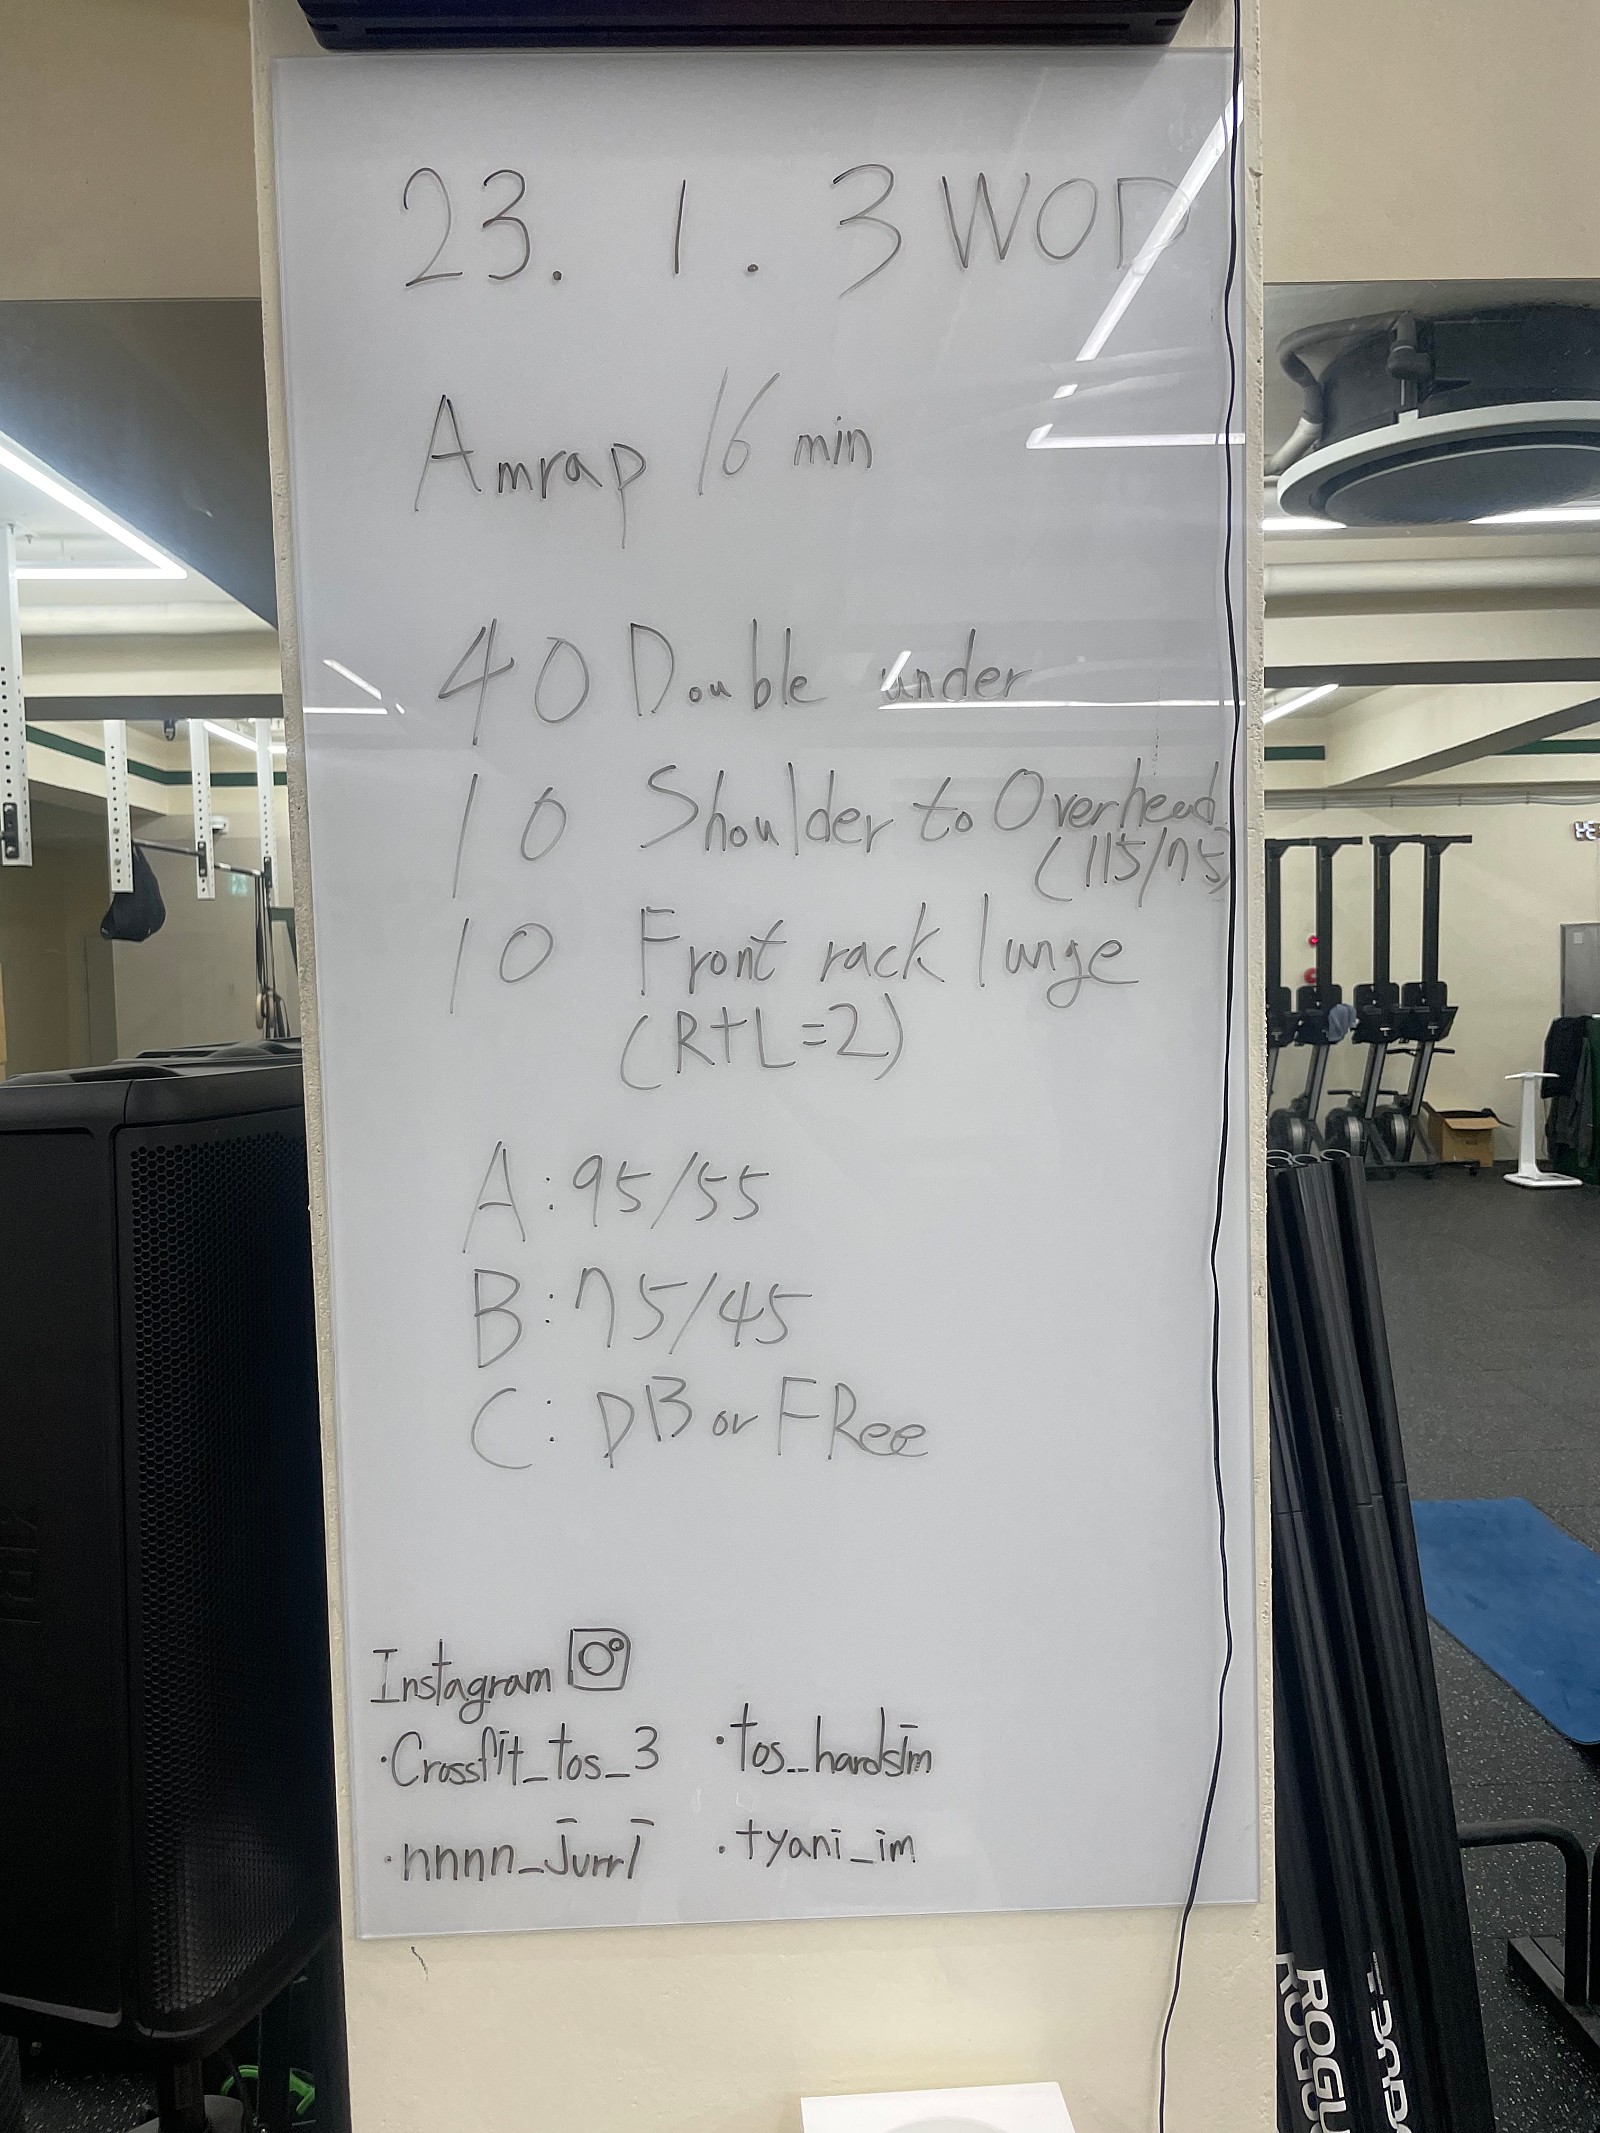 23. 1. 3 WOD
Amrap 16 min
40 Double under
10 Shoulder to Overhead
(115/75)
10 Front rack lunge
(R+L=2)
A: 95/55
B: 75/45
C: DB or FRee
Instagram
·Crossfit_tos_3 ·tos_hardsim
·nnnn_jurri ·tyani_im
ROGUE